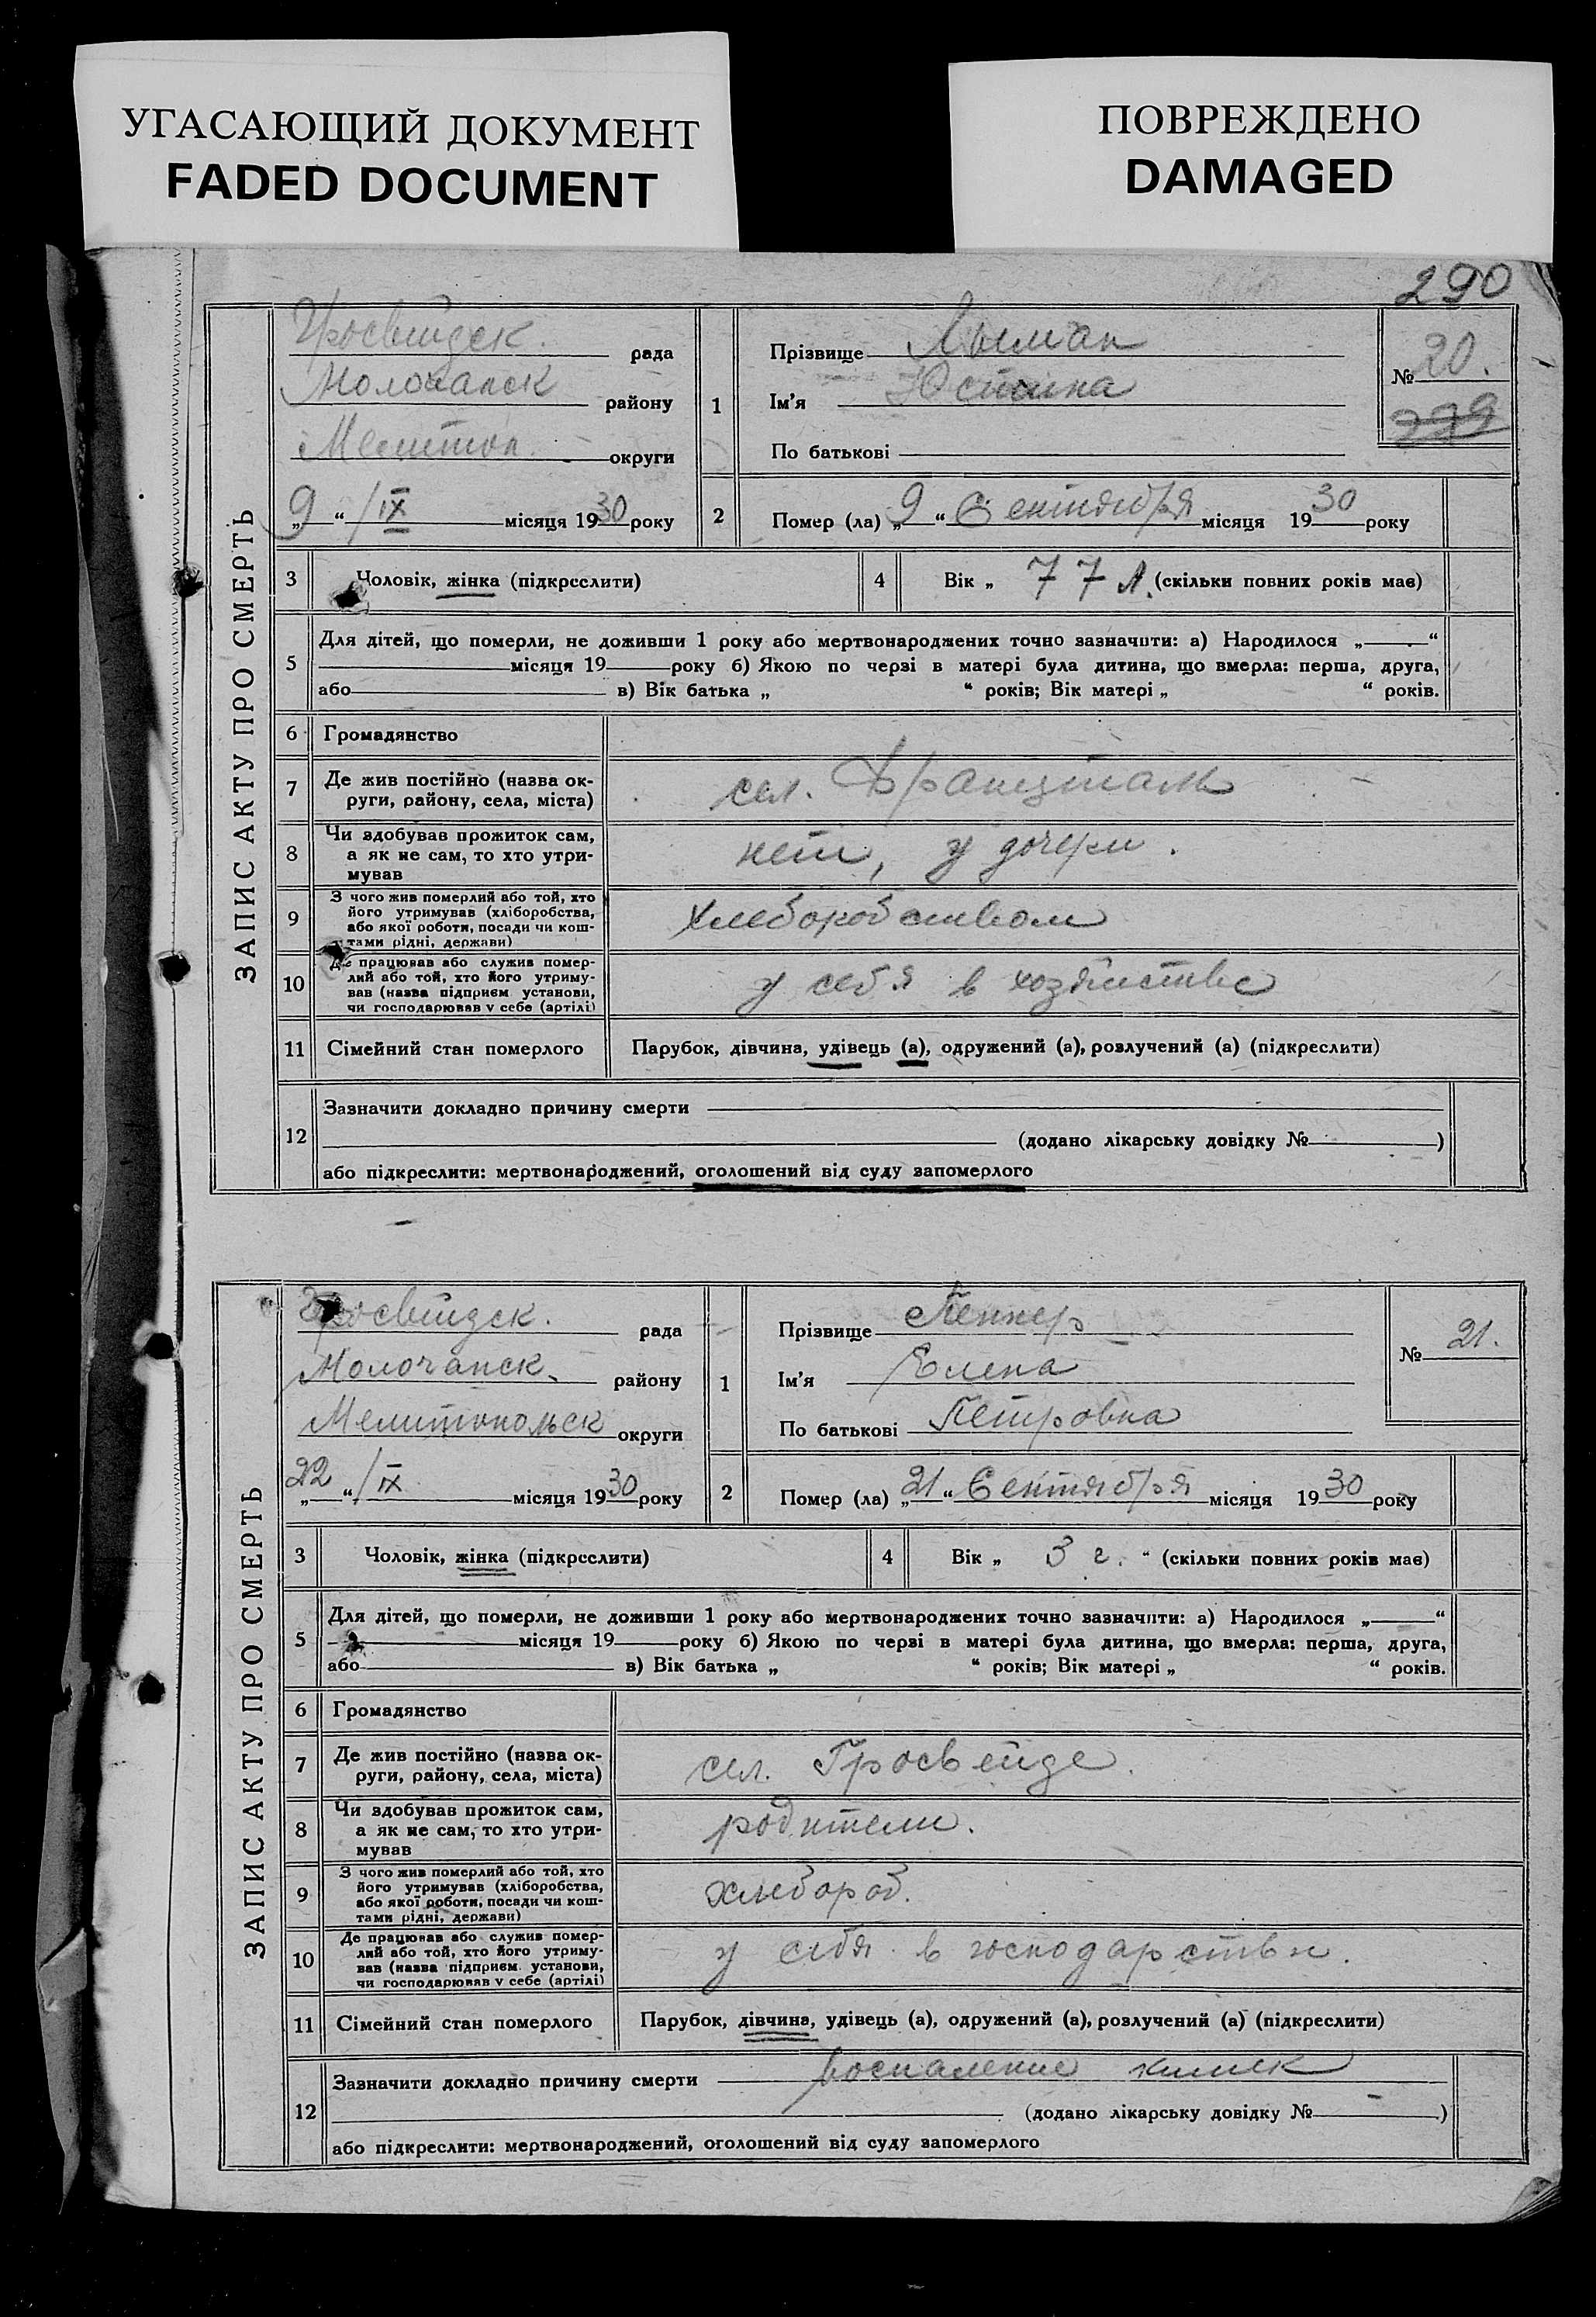 УГАСАЮЩИЙ ДОКУМЕНТ
FADED DOCUMENT
ПОВРЕЖДЕНО
DAMAGED
290
ЗАПИС АКТУ ПРО СМЕРТЬ
Гросвейдск. рада
Молочанск району
Мелитоп. округи
„9“ /IX місяця 1930 року
1
Прізвище
Ім'я Юстина
По батькові
№ 20.
299
2
Помер (ла) „9“ Сентября місяця 1930 року
3
Чоловік, жінка (підкреслити)
4
Вік „ 77 л. (скільки повних років має)
5
Для дітей, що померли, не доживши 1 року або мертвонароджених точно зазначити: а) Народилося „ “
місяця 19 року б) Якою по черзі в матері була дитина, що вмерла: перша, друга,
або в) Вік батька „ “ років; Вік матері „ “ років.
6 Громадянство
7 Де жив постійно (назва ок-
руги, району, села, міста)
сел. Францталь
8 Чи здобував прожиток сам,
а як не сам, то хто утри-
мував
нет, у дочери.
9 З чого жив померлий або той, хто
його утримував (хліборобства,
або якої роботи, посади чи кош-
тами рідні, держави)
хлеборобством
10 Де працював або служив помер-
лий або той, хто його утриму-
вав (назва підприєм. установи,
чи господарював у себе (артілі)
у себя в хозяйстве
11 Сімейний стан померлого
Парубок, дівчина, удівець (а), одружений (а), розлучений (а) (підкреслити)
12
Зазначити докладно причину смерти
(додано лікарську довідку № )
або підкреслити: мертвонароджений, оголошений від суду запомерлого
ЗАПИС АКТУ ПРО СМЕРТЬ
Гросвейдск. рада
Молочанск. району
Мелитопольск округи
„22“ /IX місяця 1930 року
1
Прізвище Пеннер
Ім'я Елена
По батькові Петровна
№ 21.
2
Помер (ла) „21“ Сентября місяця 1930 року
3
Чоловік, жінка (підкреслити)
4
Вік „ 3 г. “ (скільки повних років має)
5
Для дітей, що померли, не доживши 1 року або мертвонароджених точно зазначити: а) Народилося „ “
місяця 19 року б) Якою по черзі в матері була дитина, що вмерла: перша, друга,
або в) Вік батька „ “ років; Вік матері „ “ років.
6 Громадянство
7 Де жив постійно (назва ок-
руги, району, села, міста)
сел. Гросвейде.
8 Чи здобував прожиток сам,
а як не сам, то хто утри-
мував
родители.
9 З чого жив померлий або той, хто
його утримував (хліборобства,
або якої роботи, посади чи кош-
тами рідні, держави)
хлебороб.
10 Де працював або служив помер-
лий або той, хто його утриму-
вав (назва підприєм. установи,
чи господарював у себе (артілі)
у себя в господарстви.
11 Сімейний стан померлого
Парубок, дівчина, удівець (а), одружений (а), розлучений (а) (підкреслити)
12
Зазначити докладно причину смерти воспаление кишек
(додано лікарську довідку № )
або підкреслити: мертвонароджений, оголошений від суду запомерлого